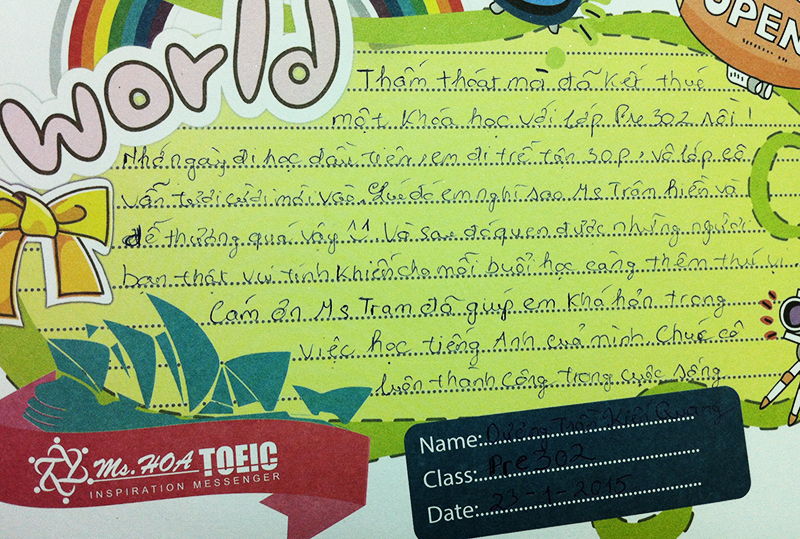 world
OPEN
Thấm thoát mà đã kết thúc
một khóa học với lớp Pre 302 rồi !
Nhớ ngày đi học đầu tiên, em đi trễ tận 30p, vô lớp cô
vẫn tươi cười mời vào. Lúc đó em nghĩ sao Ms Trâm hiền và
dễ thương quá vậy ^^. Và sau đó quen được những người
bạn thật vui tính khiến cho mỗi buổi học càng thêm thú vị
Cám ơn Ms Tram đã giúp em khá hơn trong
việc học tiếng Anh của mình Chúc cô
luôn thành công trong cuộc sống
Ms. HOA TOEIC
INSPIRATION MESSENGER
Name: Dương Trần Kiến Quang
Class: Pre 302
Date: 23-1-2015